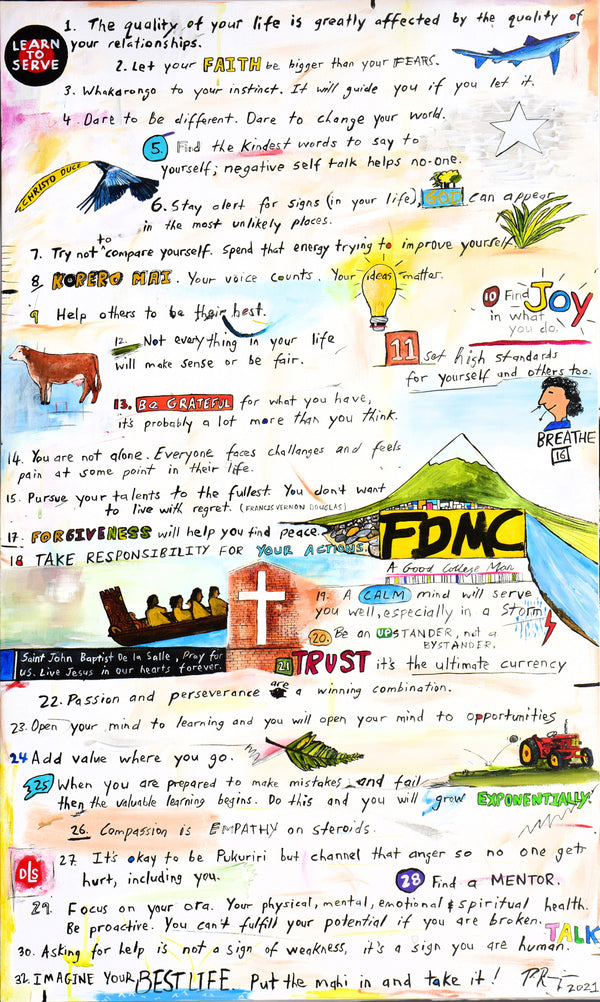 LEARN
TO
SERVE
1. The quality of your life is greatly affected by the quality of
your relationships.
2. Let your FAITH be bigger than your FEARS.
3. Whakarongo to your instinct. It will guide you if you let it.
4. Dare to be different. Dare to change your world.
5. Find the kindest words to say to
yourself; negative self talk helps no-one.
CHRISTO DUCE
6. Stay alert for signs (in your life), GOD can appear
in the most unlikely places.
7. Try not to compare yourself. Spend that energy trying to improve yourself
8. KORERO MAI. Your voice counts. Your ideas matter.
9 Help others to be their best.
10 Find JOY
in what
you do.
11 set high standards
for yourself and others too.
12. Not everything in your life
will make sense or be fair.
13. BE GRATEFUL for what you have,
it's probably a lot more than you think.
BREATHE
16
14. You are not alone. Everyone faces challanges and feels
pain at some point in their life.
15. Pursue your talents to the fullest. You don't want
to live with regret. (FRANCIS VERNON DOUGLAS)
17. FORGIVENESS will help you find peace.
18 TAKE RESPONSIBILITY FOR YOUR ACTIONS.
FDMC
A Good College Man
19. A CALM mind will serve
you well, especially in a Storm!
20. Be an UPSTANDER, not a
BYSTANDER.
Saint John Baptist De la Salle, Pray for
us. Live Jesus in our hearts forever.
21 TRUST it's the ultimate currency
22. Passion and perseverance are a winning combination.
23. Open your mind to learning and you will open your mind to opportunities
24 Add value where you go.
25 When you are prepared to make mistakes and fail
then the valuable learning begins. Do this and you will grow EXPONENTIALLY!
26. Compassion is EMPATHY on steroids.
DLS
27. It's okay to be Pukuriri but channel that anger so no one gets
hurt, including you.
28 Find a MENTOR.
29. Focus on your ora. Your physical, mental, emotional & spiritual health.
Be proactive. You can't fulfill your potential if you are broken.
TALK
30. Asking for help is not a sign of weakness, it's a sign you are human.
IMAGINE YOUR BEST LIFE. Put the mahi in and take it!
2021